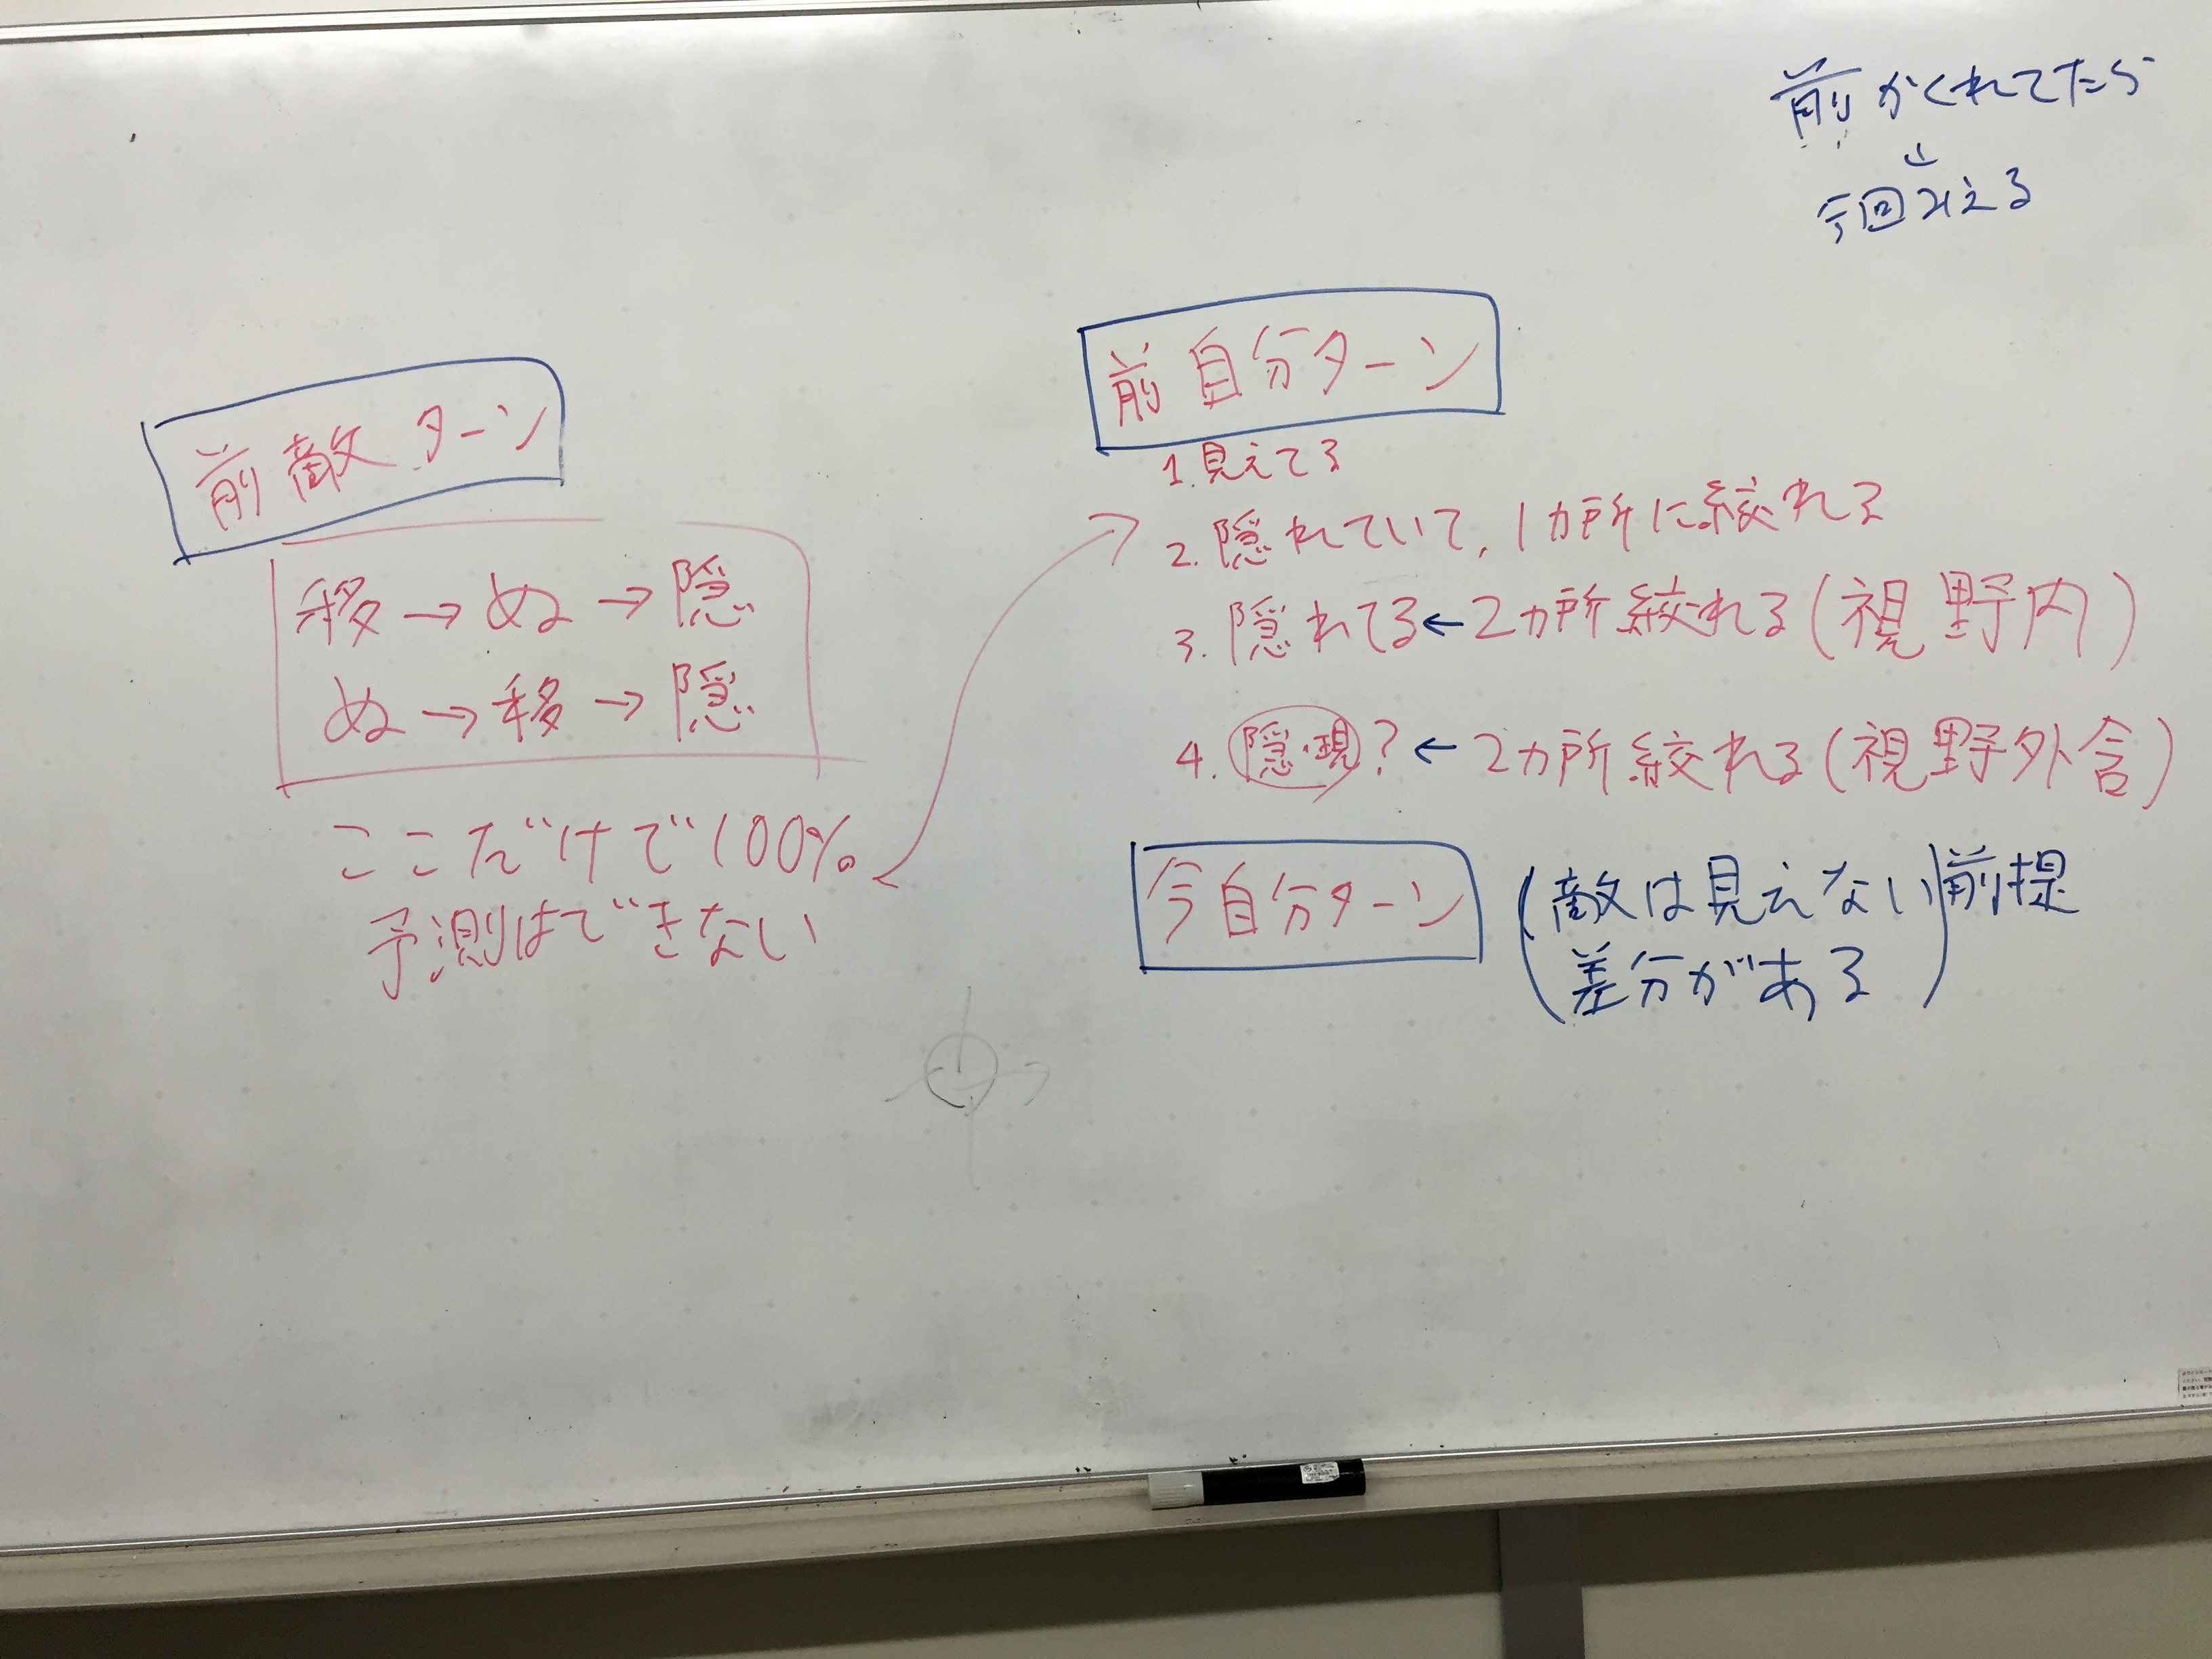 前かくれてたら
今回みえる
前敵ターン
移→ぬ→隠
ぬ→移→隠
ここだけで100%
予測はできない
前自分ターン
1.見えてる
2.隠れていて、1カ所に絞れる
3.隠れてる←2カ所絞れる(視野内)
4.隠・現?←2カ所絞れる(視野外含)
今自分ターン
(敵は見えない
差分がある)前提